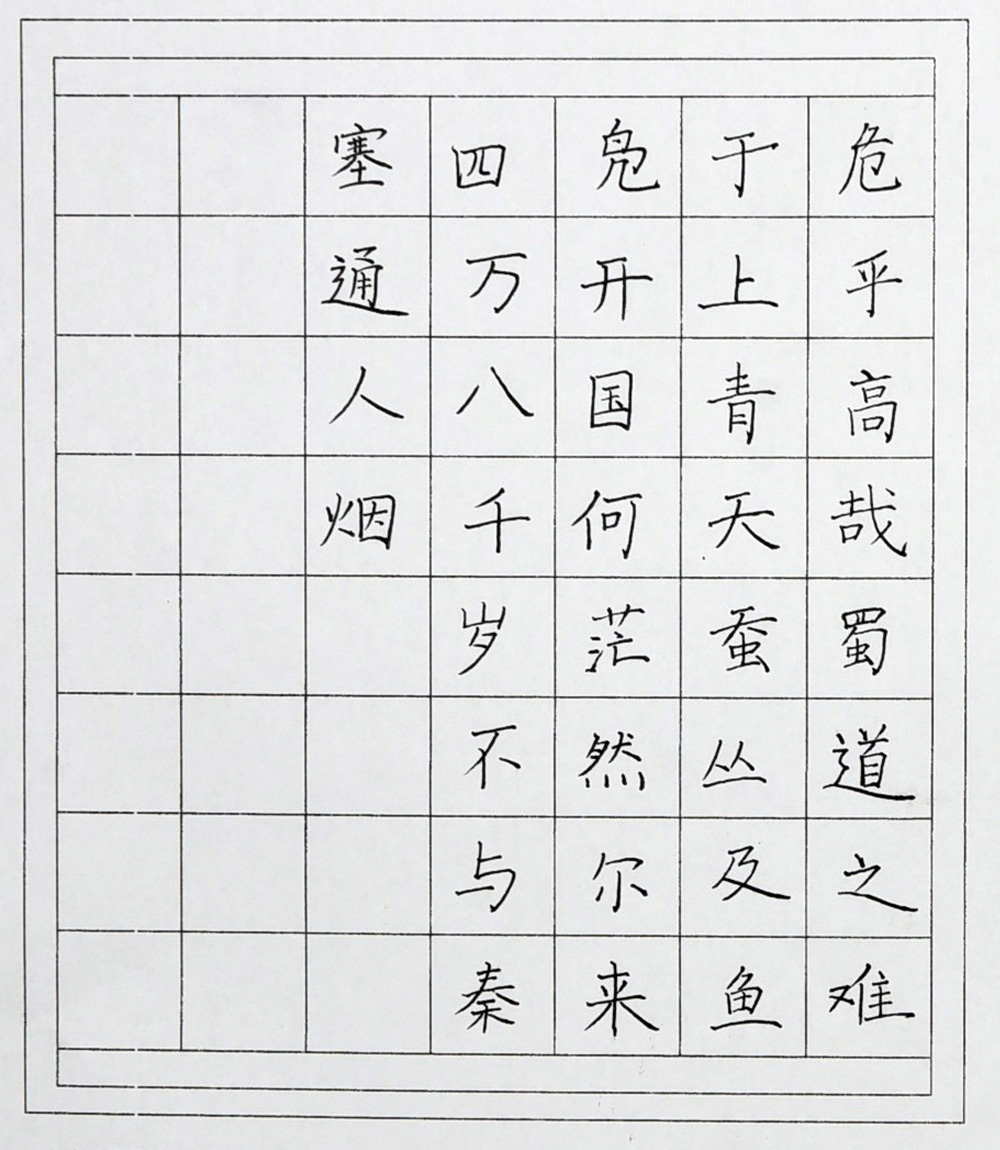 危乎高哉蜀道之难
于上青天蚕丛及鱼
凫开国何茫然尔来
四万八千岁不与秦
塞通人烟